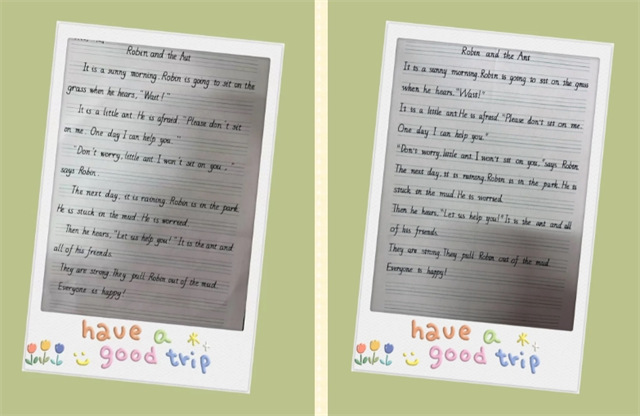 Robin and the Ant
It is a sunny morning. Robin is going to sit on the
grass when he hears, "Wait!"
It is a little ant. He is afraid. "Please don't sit
on me. One day I can help you."
"Don't worry, little ant. I won't sit on you,"
says Robin.
The next day, it is raining. Robin is in the park.
He is stuck in the mud. He is worried.
Then he hears, "Let us help you!" It is the ant and
all of his friends.
They are strong. They pull Robin out of the mud.
Everyone is happy!
have a
good trip
Robin and the Ant
It is a sunny morning. Robin is going to sit on the grass
when he hears, "Wait!"
It is a little ant. He is afraid. "Please don't sit on me.
One day I can help you."
"Don't worry, little ant. I won't sit on you," says Robin.
The next day, it is raining. Robin is in the park. He is
stuck in the mud. He is worried.
Then he hears, "Let us help you!" It is the ant and all
of his friends.
They are strong. They pull Robin out of the mud.
Everyone is happy!
have a
good trip